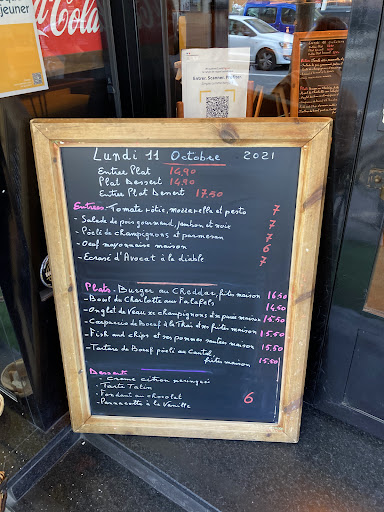 jeuner
Coca-Cola
Entrer, Scanner,
Lundi 11 Octobre 2021
Entree Plat 14,90
Plat Dessert 14,90
Entree Plat Dessert 17,50
Entrees - Tomate rôtie, mozzarella et pesto 7
- Salade de pois gourmand, jambon et noix 7
- Poêlé de champignons et parmesan 7
- Oeuf mayonnaise maison 6
- Ecrasé d'Avocat à la diable 7
Plats - Burger au Cheddar, frites maison 16,50
- Bowl de Charlotte aux Falafels 14,50
- Onglet de Veau xc champignons et sa purée maison 15,50
- Carpaccio de Boeuf à la Thaï et ses frites maison 15,50
- Fish and chips et ses pommes sautées maison 15,50
- Tartare de Boeuf poêlé au Cantal,
frites maison 15,50
Desserts
- Creme citron meringué
- Tarte Tatin
- Fondant au chocolat 6
- Pannacotta à la Vanille